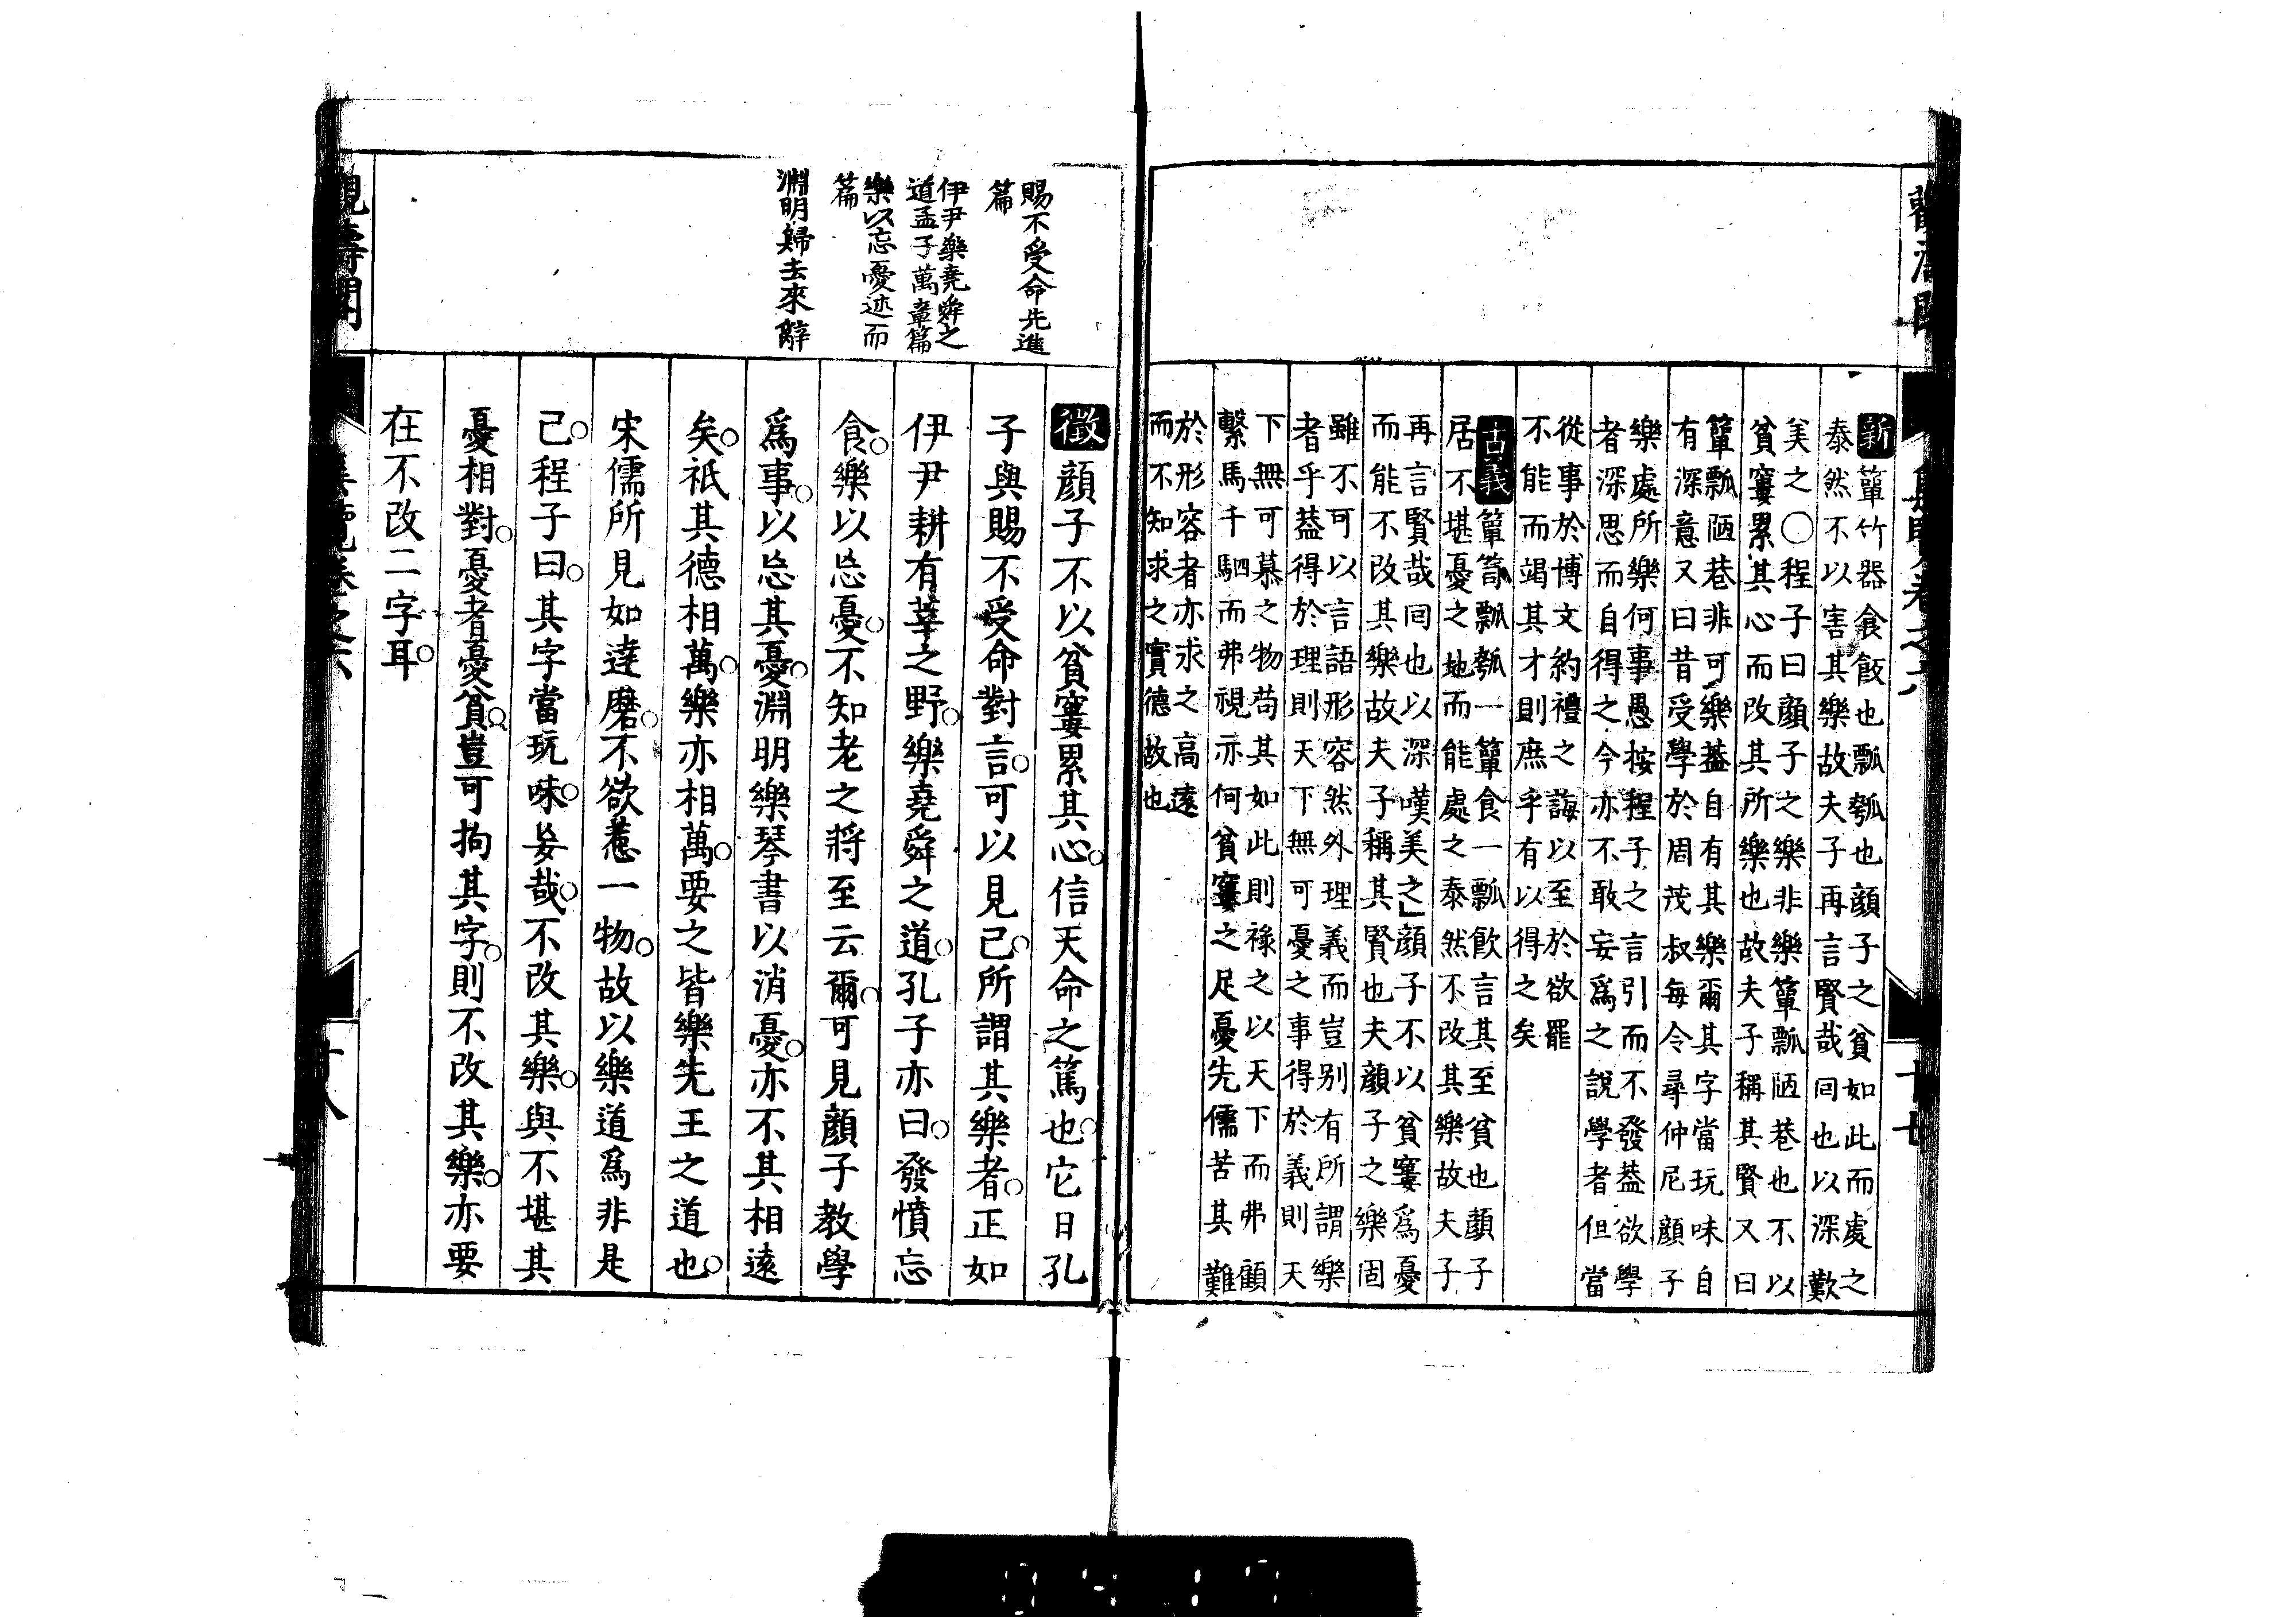 新簞竹器食飯也瓢瓠也顔子之貧如此而處之
泰然不以害其樂故夫子再言賢哉囘也以深歎
美之○程子曰顔子之樂非樂簞瓢陋巷也不以
貧窶累其心而改其所樂也故夫子稱其賢又曰
簞瓢陋巷非可樂葢自有其樂爾其字當玩味自
有深意又曰昔受學於周茂叔每令尋仲尼顔子
樂處所樂何事愚按程子之言引而不發葢欲學
者深思而自得之今亦不敢妄爲之說學者但當
從事於博文約禮之誨以至於欲罷
不能而竭其才則庶乎有以得之矣
古義簞笥瓢瓠一簞食一瓢飲言其至貧也顔子
居不堪憂之地而能處之泰然不改其樂故夫子
再言賢哉囘也以深嘆美之」顔子不以貧窶爲憂
而能不改其樂故夫子稱其賢也夫顔子之樂固
雖不可以言語形容然外理義而豈别有所謂樂
者乎葢得於理則天下無可憂之事得於義則天
下無可慕之物苟其如此則祿之以天下而弗顧
繫馬千駟而弗視亦何貧窶之足憂先儒苦其難
於形容者亦求之高遠
而不知求之實德故也
賜不受命先進
篇
伊尹樂堯舜之
道孟子萬章篇
樂以忘憂述而
篇
淵明歸去來辭
徵顔子不以貧窶累其心。信天命之篤也。它日孔
子與賜不受命對言。可以見已。所謂其樂者。正如
伊尹耕有莘之野。樂堯舜之道。孔子亦曰。發憤忘
食。樂以忘憂。不知老之將至云爾。可見顔子教學
爲事。以忘其憂。淵明樂琴書以消憂。亦不其相遠
矣。祇其德相萬。樂亦相萬。要之皆樂先王之道也。
宋儒所見如達磨。不欲惹一物。故以樂道爲非是
己。程子曰。其字當玩味。妄哉。不改其樂。與不堪其
憂相對。憂者憂貧。豈可拘其字。則不改其樂。亦要
在不改二字耳。